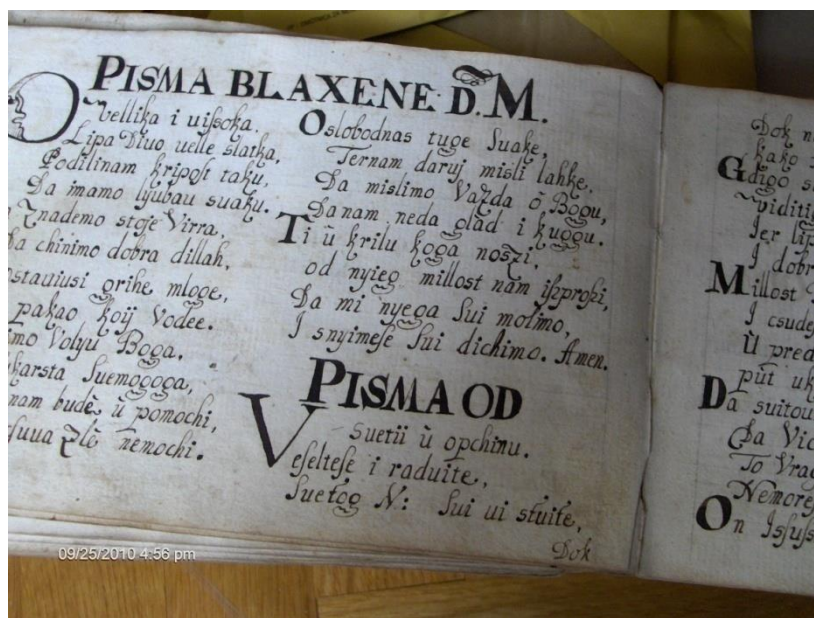 PISMA BLAXENE D. M.
O vellika i uissoka.
Lipa Divo uelle slatka,
Podilinam kripost taku,
Da imamo lyubau suaku.
Znademo stoje Virra,
Da chinimo dobra dillah,
ostaviusi grihe mloge,
pakao koij vodee.
imo Volyu Boga.
karsta Suemogoga,
nam budē ù pomochi,
zlē nemochi.
Oslobodnas tuge Suake,
Ternam daruj misli lahke,
Da mislimo Vazda ò Bogu,
Da nam neda glad i kuggu.
Ti ù krilu koga noszi,
od nyieg millost nam iszprosi,
Da mi nyega Sui molimo,
I snyimese Sui dichimo. Amen.
PISMA OD
Suetii ù opchinu.
Veseltese i raduite,
Suetog N: Sui ui stuite,
Dok
Dok
kako
Gdigo
viditi
Jer lip
I dobr
Millost
I csude
Ù pred
pùt uk
Da suitou
Da Vic
To Vrag
Nemore
On Issus
09/25/2010 4:56 pm